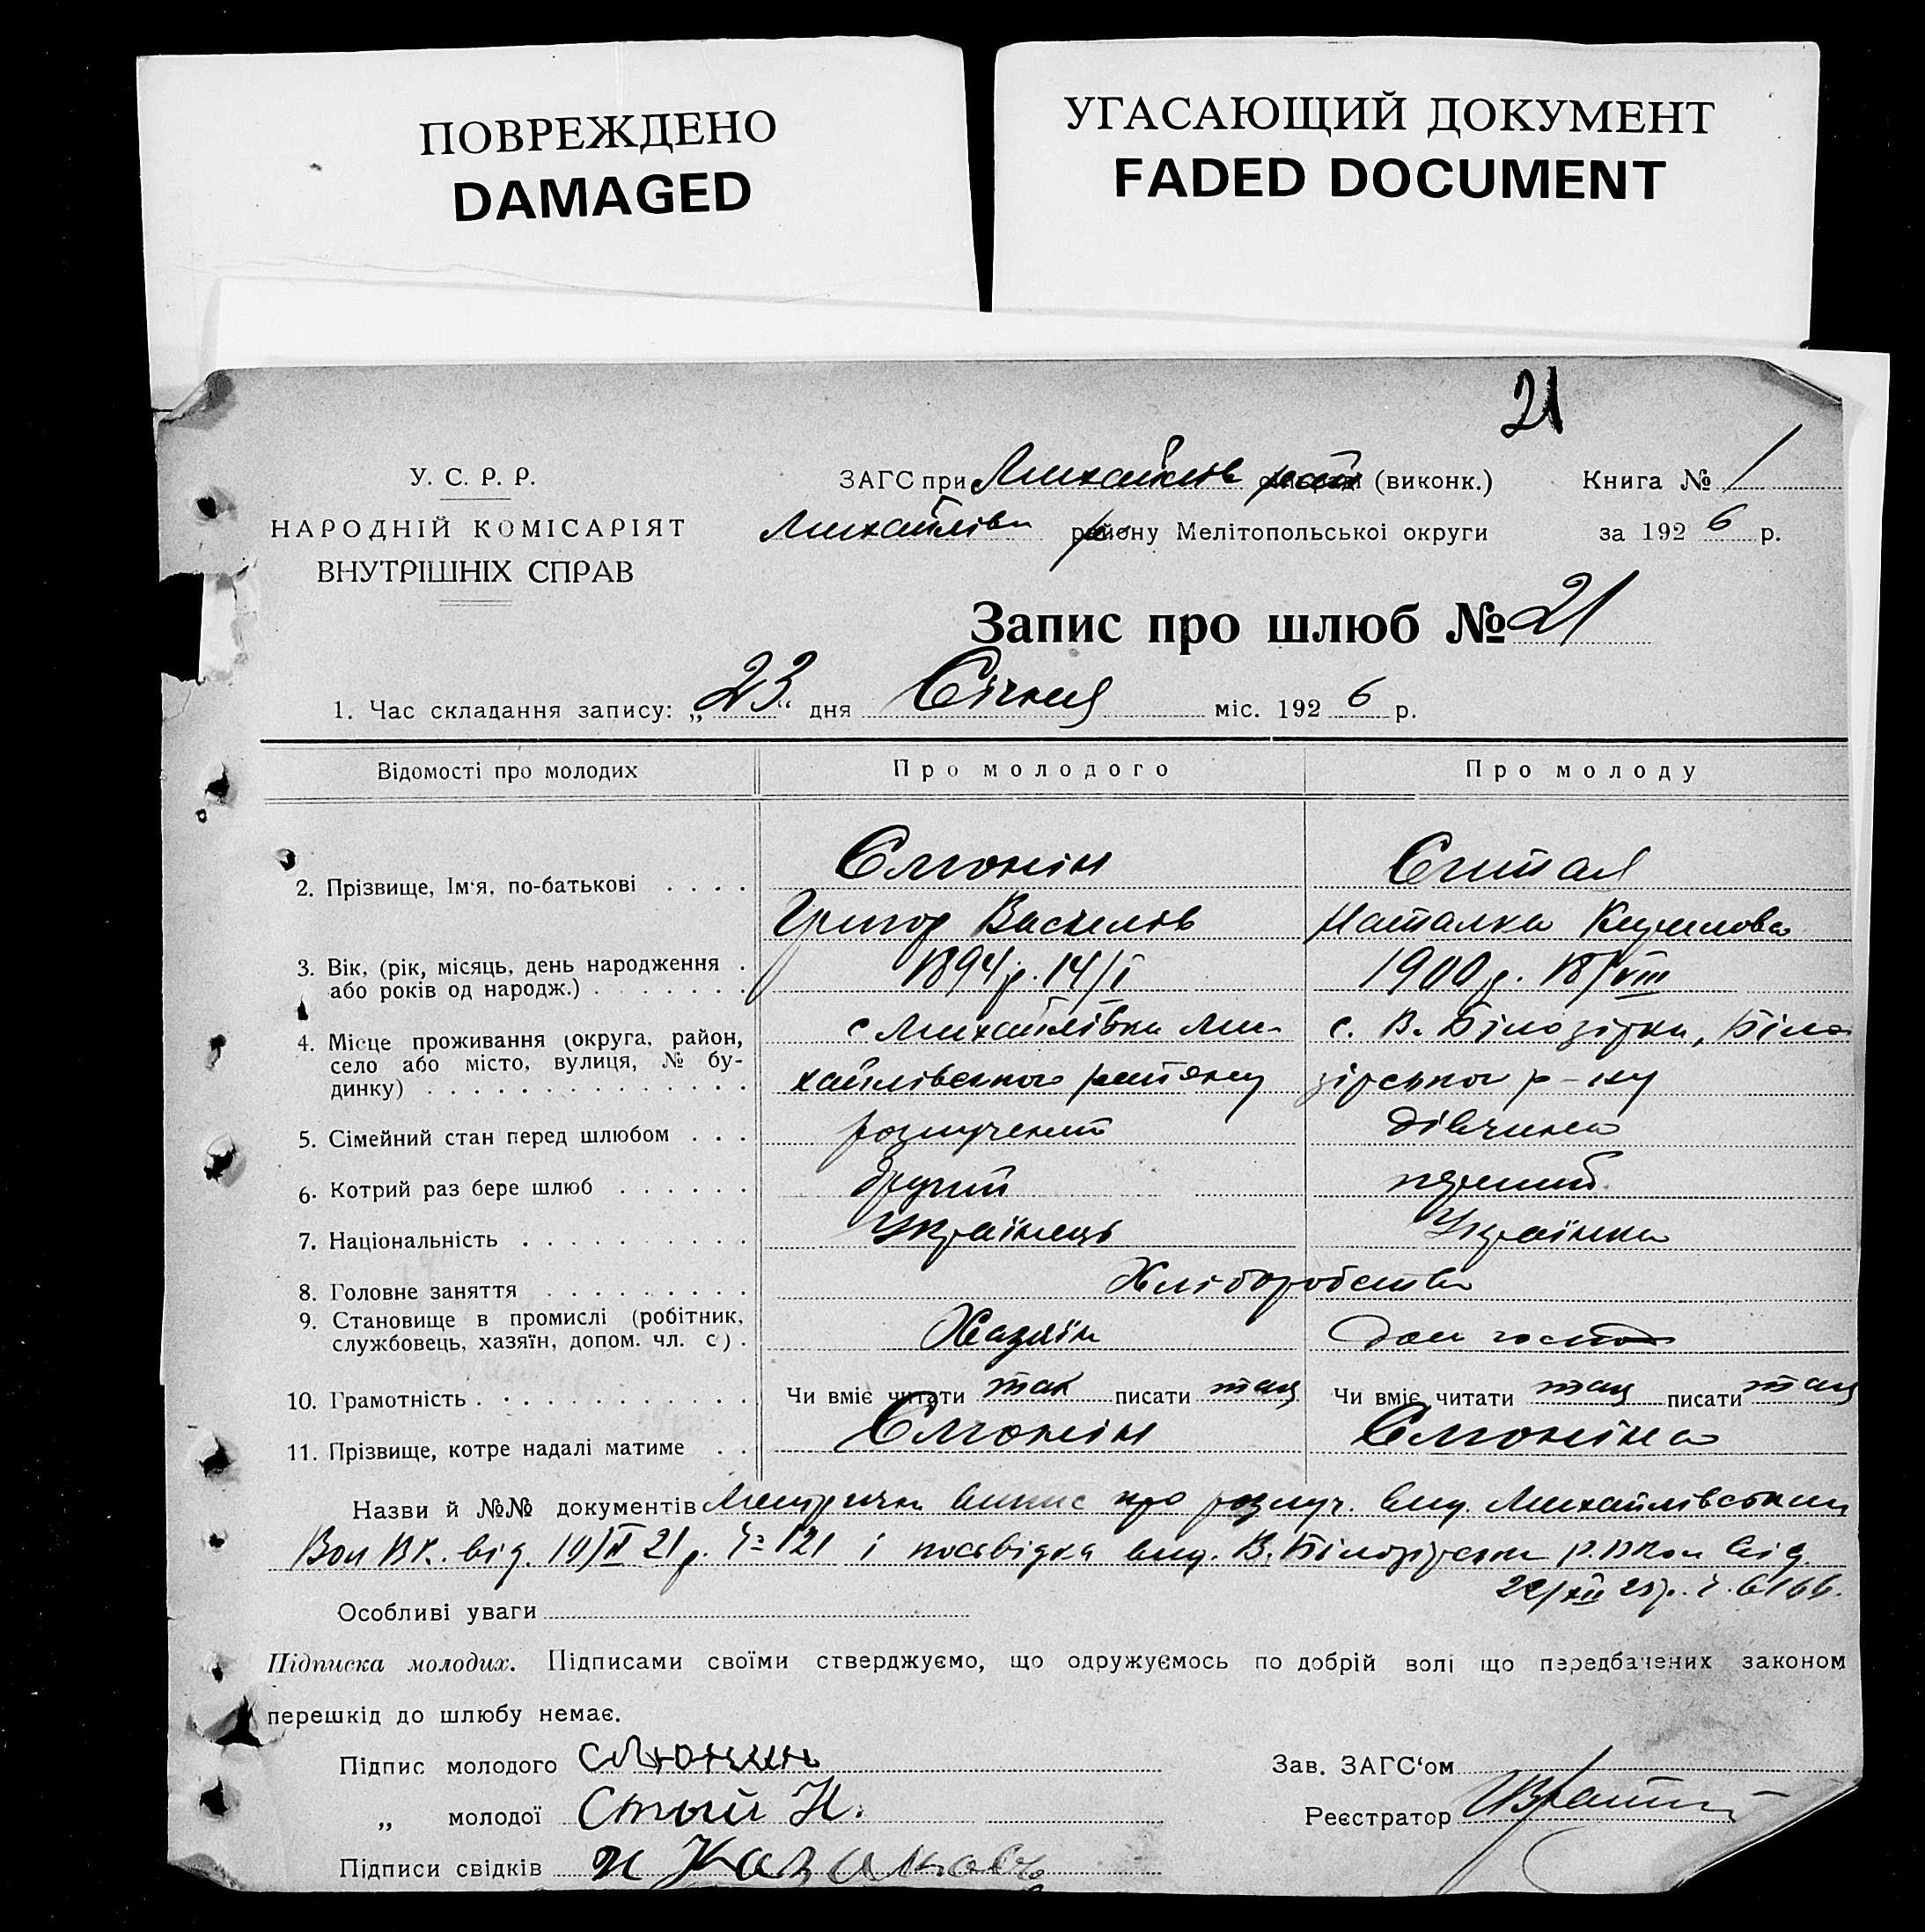 ПОВРЕЖДЕНО
DAMAGED
УГАСАЮЩИЙ ДОКУМЕНТ
FADED DOCUMENT
21
У. С. Р. Р.
НАРОДНІЙ КОМІСАРІЯТ
ВНУТРІШНІХ СПРАВ
ЗАГС при Михайлів рай (виконк.)
Михайлівс району Мелітопольської округи
Книга № 1
за 1926 р.
Запис про шлюб № 21
1. Час складання запису: „23“ дня Січня міс. 1926 р.
Відомості про молодих Про молодого Про молоду
2. Прізвище, Ім'я, по-батькові . . . . Слюнін
Григор Васильов Наталка Кирилова
3. Вік, (рік, місяць, день народження . 1894 р. 14/I 1900 р. 18/VIII
або років од народж.) . . . . . . .
4. Місце проживання (округа, район, с Михайлівки Ми- с. В. Білозірки, Біло
село або місто, вулиця, № бу- хайлівського району зірського р-ну
динку) . . . . . . . . . . . . . .
5. Сімейний стан перед шлюбом . . . розлучений дівчина
6. Котрий раз бере шлюб . . . . . . другий перший
7. Національність . . . . . . . . . . Українець Українка
8. Головне заняття . . . . . . . . . Хліборобство
9. Становище в промислі (робітник, Хазяїн дом госпо
службовець, хазяїн, допом. чл. с) .
10. Грамотність . . . . . . . . . . . . Чи вміє читати так писати так Чи вміє читати так писати так
11. Прізвище, котре надалі матиме . . Слюнін Слюніна
Назви й №№ документів Метрична випис про розлуч. вид. Михайлівським
Вол ВК. від. 21 р. ч 121 і посвідка вид. В. Білозірським від
22/XII 25 р. ч. 6166.
Особливі уваги
Підписка молодих. Підписами своїми стверджуємо, що одружуємось по добрій волі що передбачених законом
перешкід до шлюбу немає.
Підпис молодого Слюнин
„ молодої Н.
Підписи свідків
Зав. ЗАГС'ом
Реєстратор